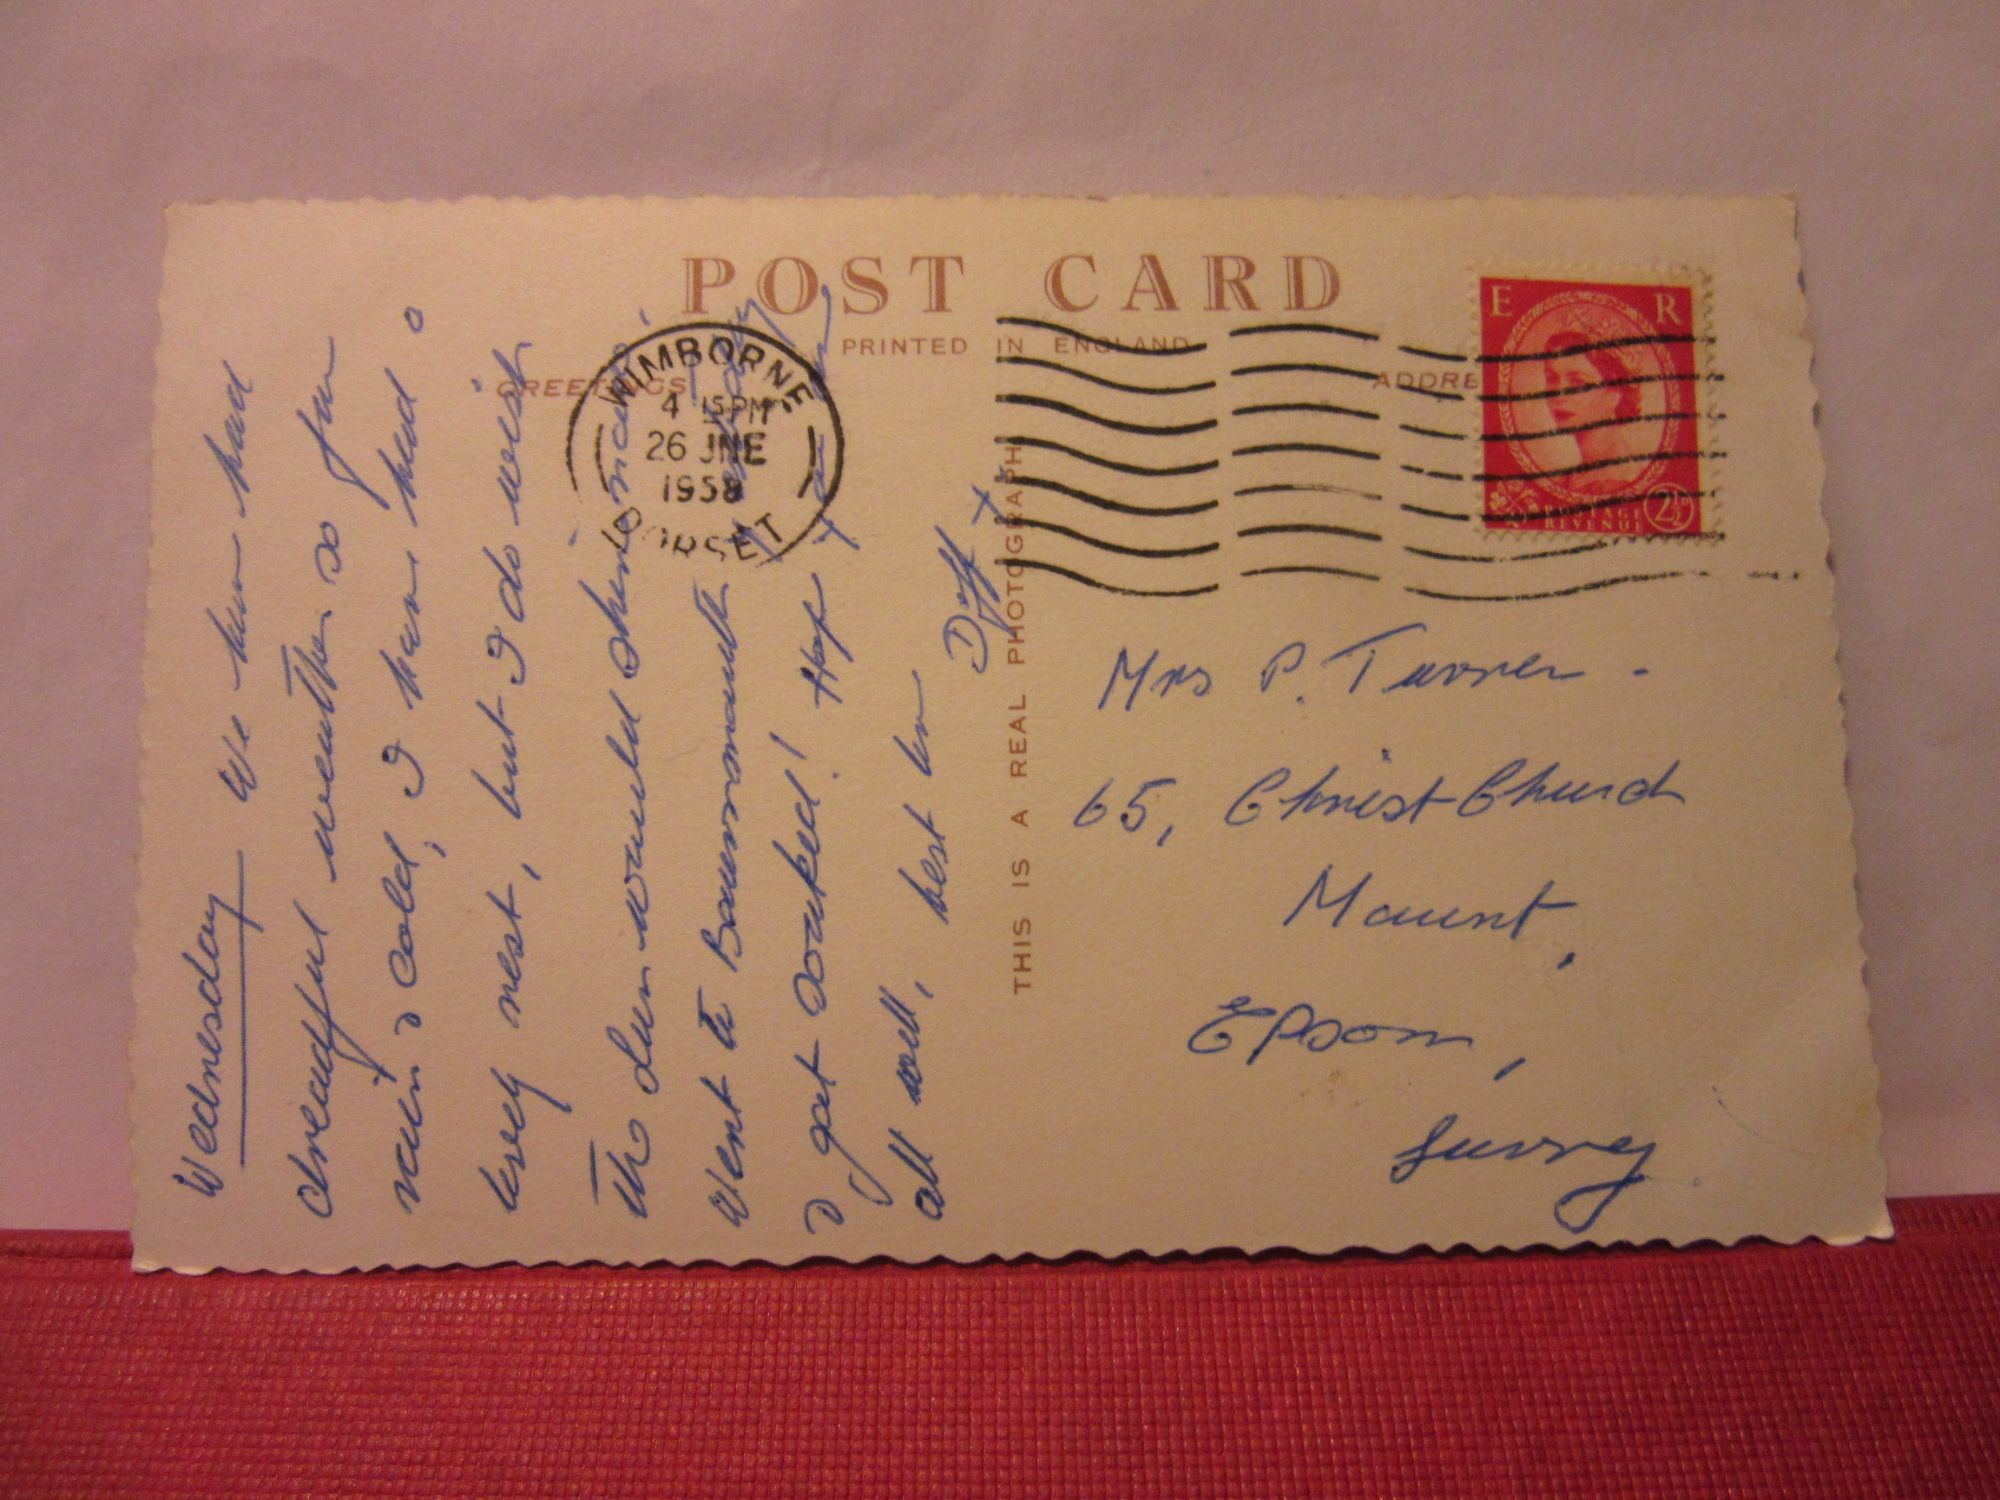 POST CARD
PRINTED IN ENGLAND
GREETINGS
ADDRE
THIS IS A REAL PHOTOGRAPH
WIMBORNE
4 15PM
26 JNE
1958
DORSET
E R
POSTAGE
REVENUE
2½D
Wednesday We have had
dreadful weather so far
rain & cold, I have had a
lovely rest, but I do wish
the sun would shine
Went to Bournemouth yesterday
& got soaked! Hope you are
all well, best love
Daff X
Mrs P. Turner -
65, Christ Church
Mount,
Epsom,
Surrey